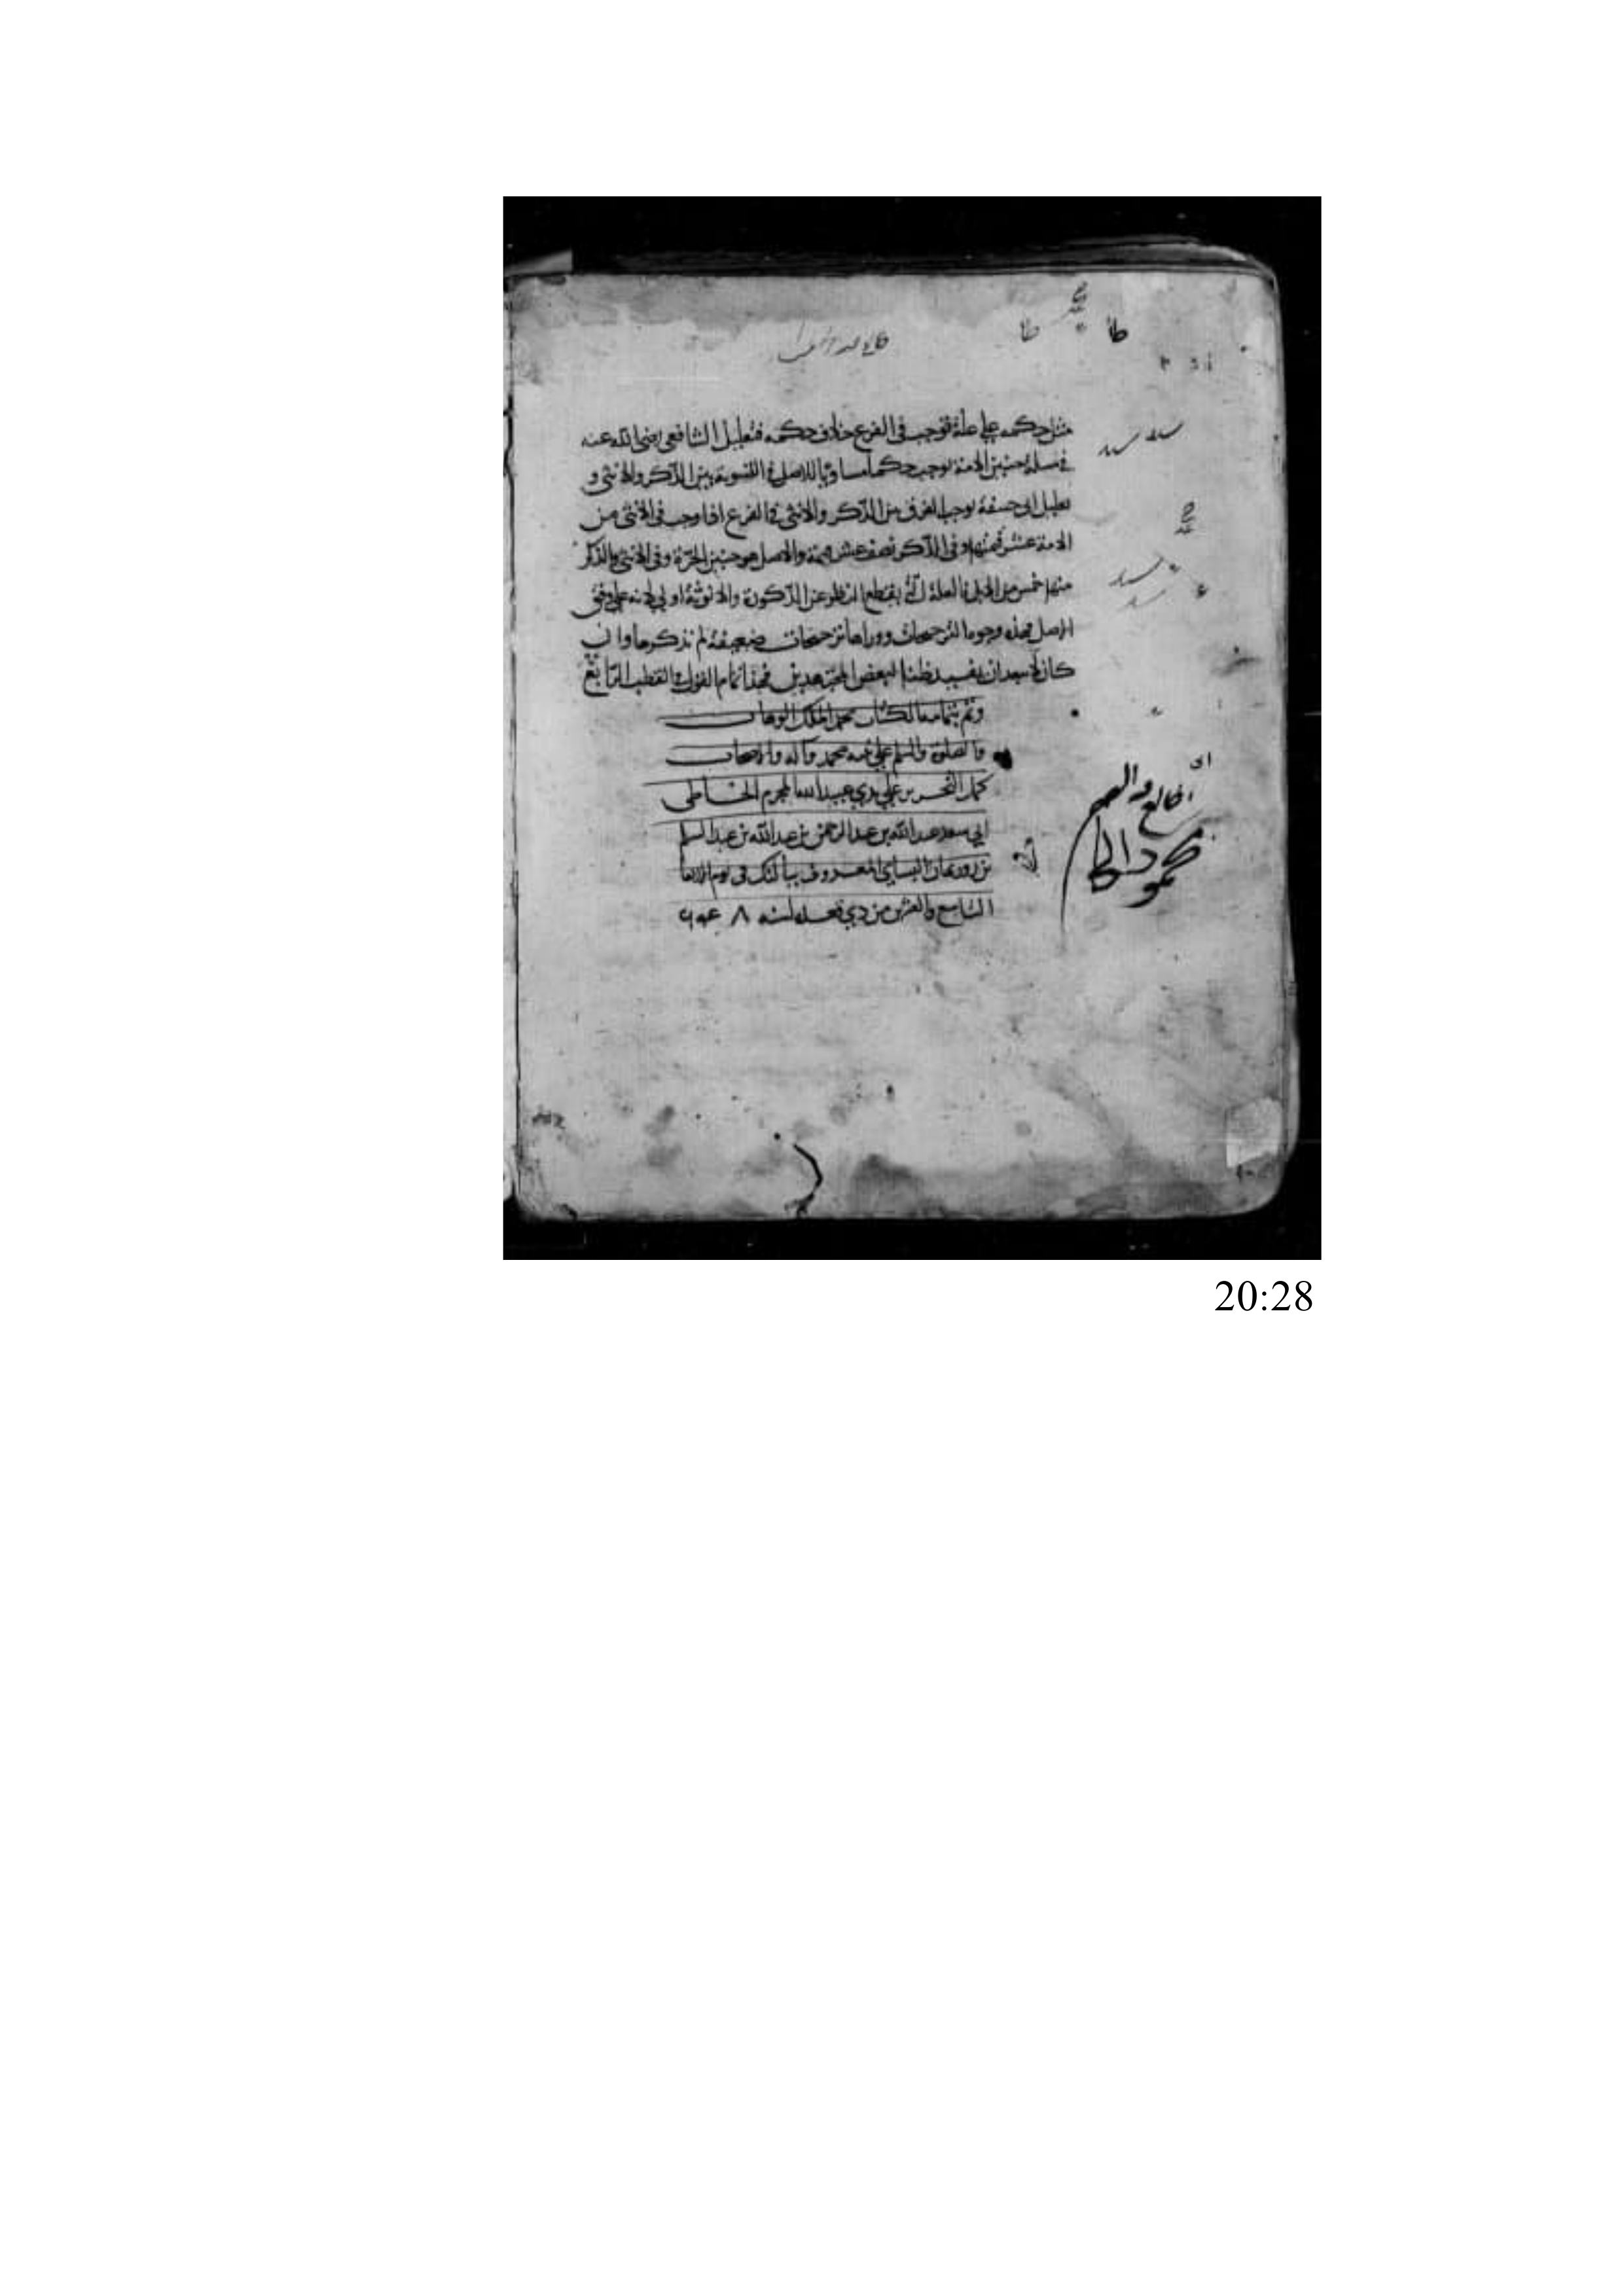 مثل حكمه علي علة توجب في الفرع خلاف حكمه فتعليل الشافعي رضي الله عنه
في مسلة جنين الامة يوجب حكما مساويا للاصل في التسوية بين الذكر والانثى و
تعليل ابي حنيفة يوجب الفرق بين الذكر والانثى في الفرع اذا وجب في الانثى من
الامة عشر قيمتها وفي الذكر نصف عشر قيمته والاصل هو جنين الحرة وفي الانثى والذكر
منها خمس من الابل فالعلة التي يقطع النظر عن الذكورة والانوثة اولي لانه علي وفق
الاصل فهذه وجوه الترجيحات ووراها ترجيحات ضعيفة لم نذكرها وان
كان لا يبعد ان يفيد ظنا لبعض المجتهدين فهذا تمام القول في القطب الرابع
وتم بتمامه الكتاب بحمد الملك الوهاب
والصلوة والسلم علي محمد وآله والاصحاب
كمل التحرير علي يدي عبيد الله المجرم الخاطي
ابي سعد عبد الله بن عبد الرحمن بن عبد الله بن عبد السلم
بن روزبهان المعروف في يوم الاربعا
التاسع والعشرين من ذي قعدة لسنة
محمود
20:28